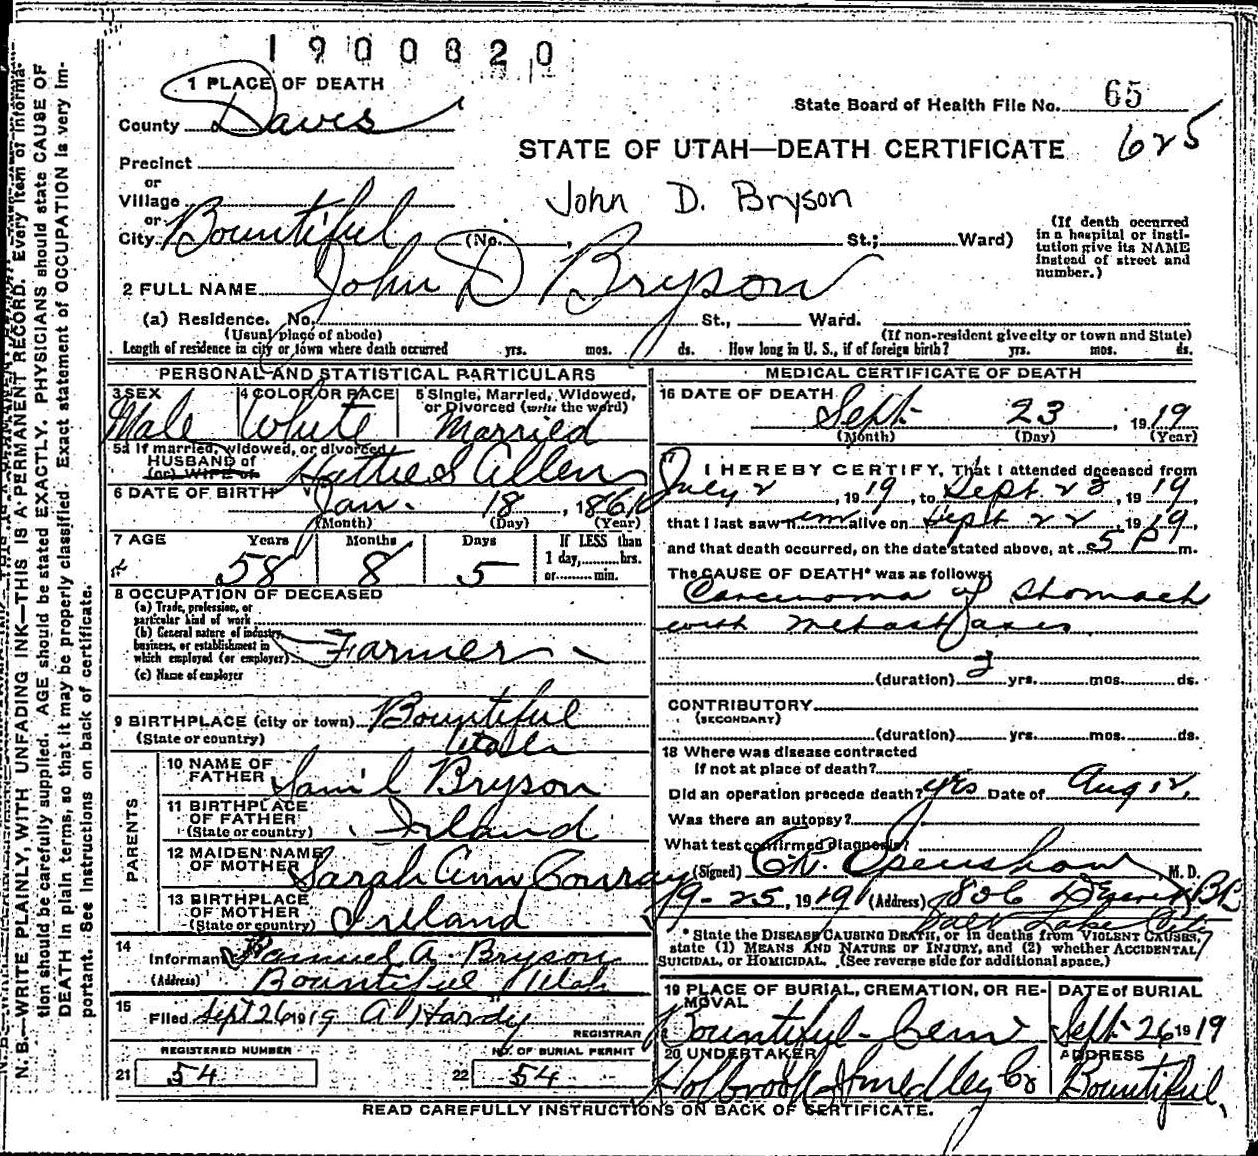 1900820
1 PLACE OF DEATH
State Board of Health File No. 65
County Davis
625
STATE OF UTAH—DEATH CERTIFICATE
Precinct
or
Village
John D. Bryson
or
City Bountiful (No. , St.; Ward)
(If death occurred
in a hospital or insti-
tution give its NAME
instead of street and
number.)
2 FULL NAME John D Bryson
(a) Residence. No. St., Ward.
(Usual place of abode) (If non-resident give city or town and State)
Length of residence in city or town where death occurred yrs. mos. ds. How long in U. S., if of foreign birth? yrs. mos. ds.
PERSONAL AND STATISTICAL PARTICULARS
3 SEX 4 COLOR OR RACE 5 Single, Married, Widowed,
or Divorced (write the word)
Male White Married
5a If married, widowed, or divorced
HUSBAND of
(or) WIFE of Hattie S Allen
6 DATE OF BIRTH Jan. 18, 1861
(Month) (Day) (Year)
7 AGE Years Months Days If LESS than
1 day, hrs.
or min.
58 8 5
8 OCCUPATION OF DECEASED
(a) Trade, profession, or
particular kind of work
(b) General nature of industry,
business, or establishment in
which employed (or employer) Farmer
(c) Name of employer
9 BIRTHPLACE (city or town) Bountiful
(State or country) Utah
PARENTS
10 NAME OF
FATHER Sam'l Bryson
11 BIRTHPLACE
OF FATHER
(State or country) Irland
12 MAIDEN NAME
OF MOTHER Sarah Ann Conray
13 BIRTHPLACE
OF MOTHER
(State or country) Ireland
14
Informant Samuel A. Bryson
(Address) Bountiful Utah
15
Filed Sept 26 1919 A Hardy
REGISTRAR
REGISTERED NUMBER NO. OF BURIAL PERMIT
21 54 22 54
MEDICAL CERTIFICATE OF DEATH
16 DATE OF DEATH
Sept. 23, 1919
(Month) (Day) (Year)
I HEREBY CERTIFY, That I attended deceased from
July 2, 1919, to Sept 23, 1919,
that I last saw him alive on Sept 22, 1919,
and that death occurred, on the date stated above, at 5 P m.
The CAUSE OF DEATH* was as follows:
Carcinoma of Stomach
with Metastases
(duration) 2 yrs. mos. ds.
CONTRIBUTORY
(SECONDARY)
(duration) yrs. mos. ds.
18 Where was disease contracted
If not at place of death?
Did an operation precede death? yes Date of Aug 12,
Was there an autopsy?
What test confirmed diagnosis?
(Signed) C.R. Openshaw, M. D.
9-25, 1919 (Address) 806 Deseret Bk
Salt Lake City
* State the DISEASE CAUSING DEATH, or in deaths from VIOLENT CAUSES,
state (1) MEANS AND NATURE OF INJURY, and (2) whether ACCIDENTAL,
SUICIDAL, or HOMICIDAL. (See reverse side for additional space.)
19 PLACE OF BURIAL, CREMATION, OR RE-
MOVAL
DATE of BURIAL
Bountiful Cem Sept 26 1919
20 UNDERTAKER ADDRESS
Holbrook Smedley Co Bountiful,
READ CAREFULLY INSTRUCTIONS ON BACK OF CERTIFICATE.
N. B.—WRITE PLAINLY, WITH UNFADING INK—THIS IS A PERMANENT RECORD. Every item of informa-
tion should be carefully supplied. AGE should be stated EXACTLY. PHYSICIANS should state CAUSE OF
DEATH in plain terms, so that it may be properly classified. Exact statement of OCCUPATION is very im-
portant. See instructions on back of certificate.